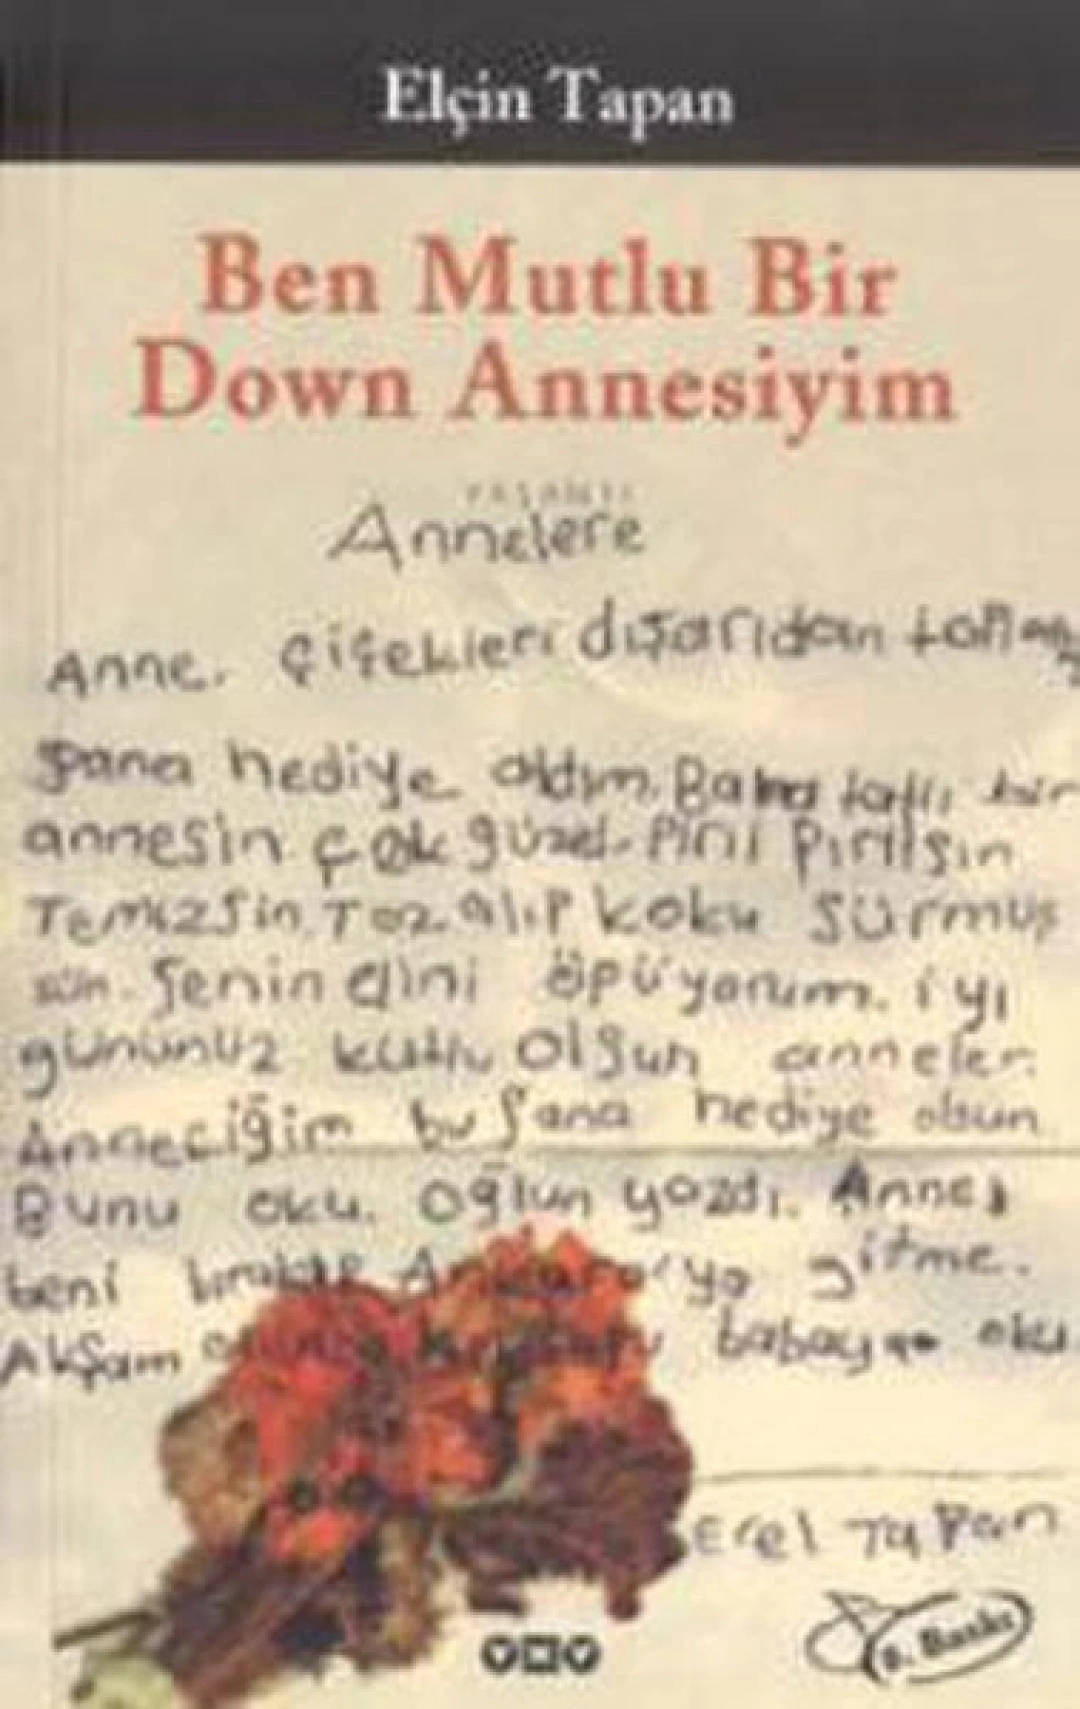 Elçin Tapan
Ben Mutlu Bir
Down Annesiyim
YAŞANTI
Annelere
Anne. çiçekleri dışarıdan
hediye aldım. Bana tatlı bir
annesin çok güzel. Pırıl Pırılsın
Temizsin. Toz alıp koku sürmüş
sün. Senin elini öpüyorum. iyi
gününüz kutlu olsun anneler.
Anneciğim bu sana hediye olsun
Bunu oku. oğlun yazdı. Anne
beni gitme.
Akşam babaya oku.
Erel Tapan
YKY
Baskı